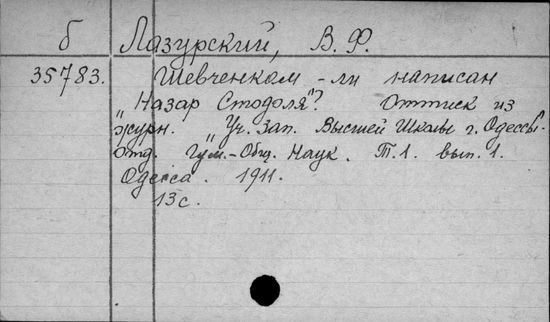 б Лазурский, В. Ф.
35783. Шевченком - ли написан
„Назар Стодоля"? Оттиск из
журн. „Уч. Зап. Высшей Школы г. Одессы".
отд. Гум.-Общ. Наук. Т.1. вып. 1.
Одесса. 1911.
13 с.